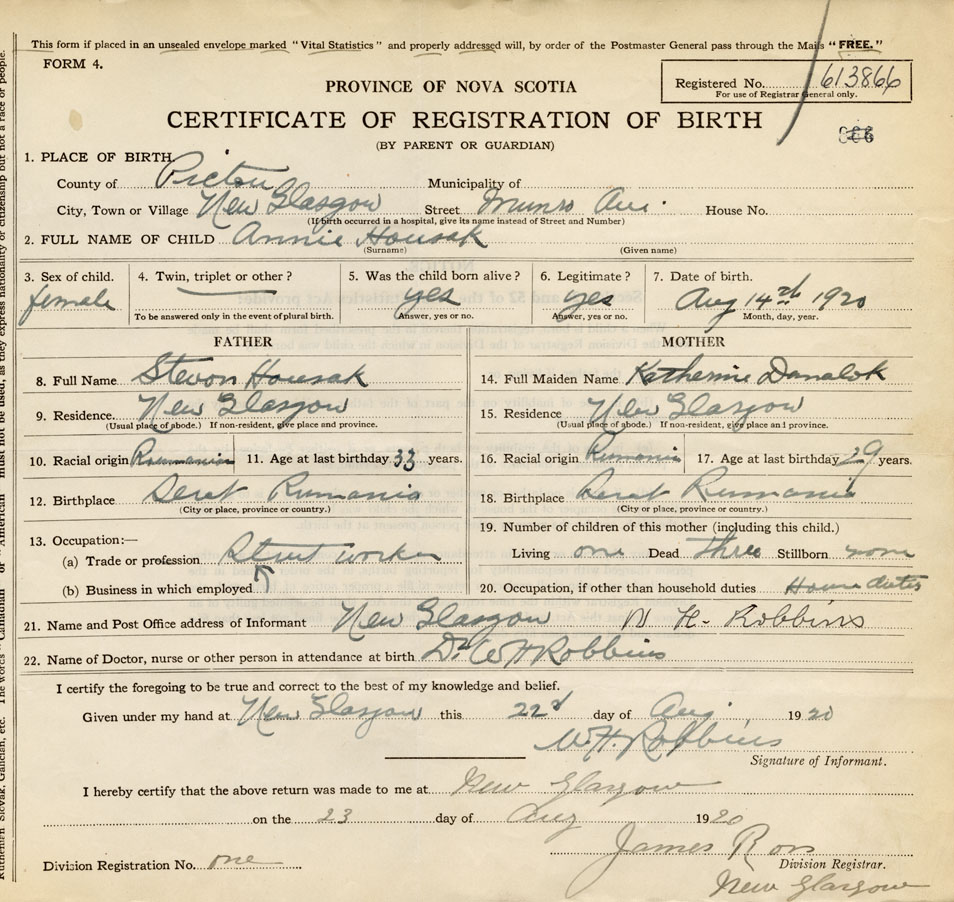 This form if placed in an unsealed envelope marked "Vital Statistics" and properly addressed will, by order of the Postmaster General pass through the Mails "FREE."
FORM 4.
Registered No. 613866
For use of Registrar General only.
PROVINCE OF NOVA SCOTIA
CERTIFICATE OF REGISTRATION OF BIRTH
(BY PARENT OR GUARDIAN)
1. PLACE OF BIRTH
County of Pictou Municipality of
City, Town or Village New Glasgow Street Munro Ave. House No.
(If birth occurred in a hospital, give its name instead of Street and Number)
2. FULL NAME OF CHILD Annie Housak
(Surname) (Given name)
3. Sex of child. 4. Twin, triplet or other? 5. Was the child born alive? 6. Legitimate? 7. Date of birth.
female yes yes Aug 14th 1920
To be answered only in the event of plural birth. Answer, yes or no. Answer, yes or no. Month, day, year.
FATHER MOTHER
8. Full Name Stevon Housak 14. Full Maiden Name Katherine Danalok
9. Residence. New Glasgow 15. Residence New Glasgow
(Usual place of abode.) If non-resident, give place and province. (Usual place of abode.) If non-resident, give place and province.
10. Racial origin Roumania 11. Age at last birthday 33 years. 16. Racial origin Rumania 17. Age at last birthday 29 years.
12. Birthplace Seret Rumania 18. Birthplace Seret Rumania
(City or place, province or country.) (City or place, province or country.)
19. Number of children of this mother (including this child.)
13. Occupation:—
(a) Trade or profession worker Living one Dead three Stillborn none
(b) Business in which employed 20. Occupation, if other than household duties House duties
21. Name and Post Office address of Informant New Glasgow W. H. Robbins
22. Name of Doctor, nurse or other person in attendance at birth Dr W H Robbins
I certify the foregoing to be true and correct to the best of my knowledge and belief.
Given under my hand at New Glasgow this 22d day of Aug. 1920
W. H. Robbins
Signature of Informant.
I hereby certify that the above return was made to me at New Glasgow
on the 23 day of Aug 1920
James Ross
Division Registration No. one Division Registrar.
New Glasgow